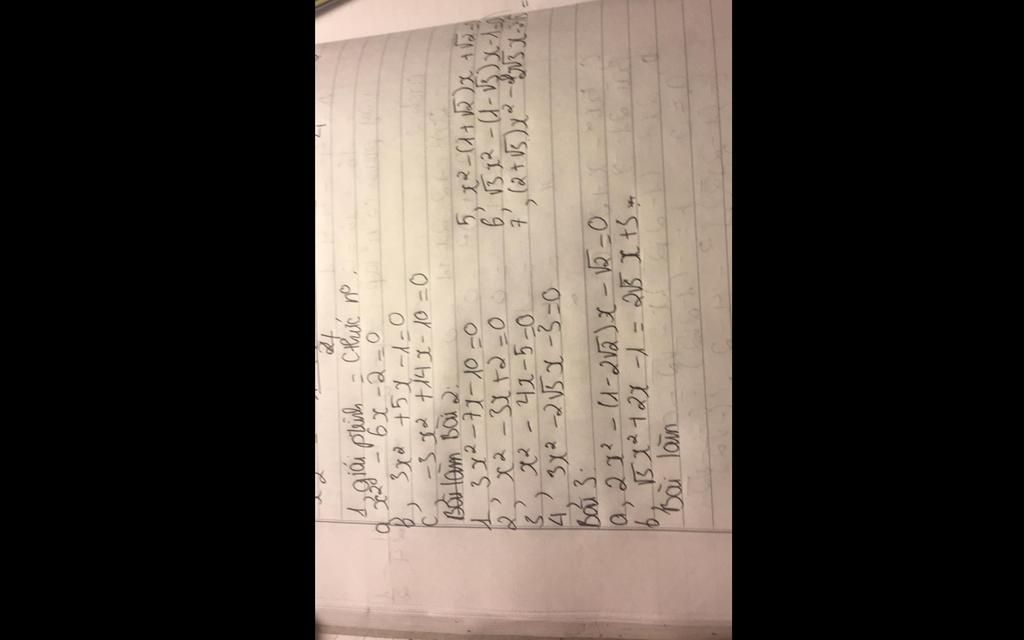 1, giải phình = thức no.
a, x² - 6x - 2 = 0
b, 3x² + 5x - 1 = 0
c, -3x² + 14x - 10 = 0
Bài làm Bài 2:
1, 3x² - 7x - 10 = 0
2, x² - 3x + 2 = 0
3, x² - 4x - 5 = 0
4, 3x² - 2√3x - 3 = 0
5, x² - (1+√2)x + √2 =
6, √3x² - (1-√3)x - 1 =
7, (2+√3)x² - 2√3x - 2
Bài 3:
a, 2x² - (1-2√2)x - √2 = 0
b, √3x² + 2x - 1 = 2√3x + 3
Bài làm